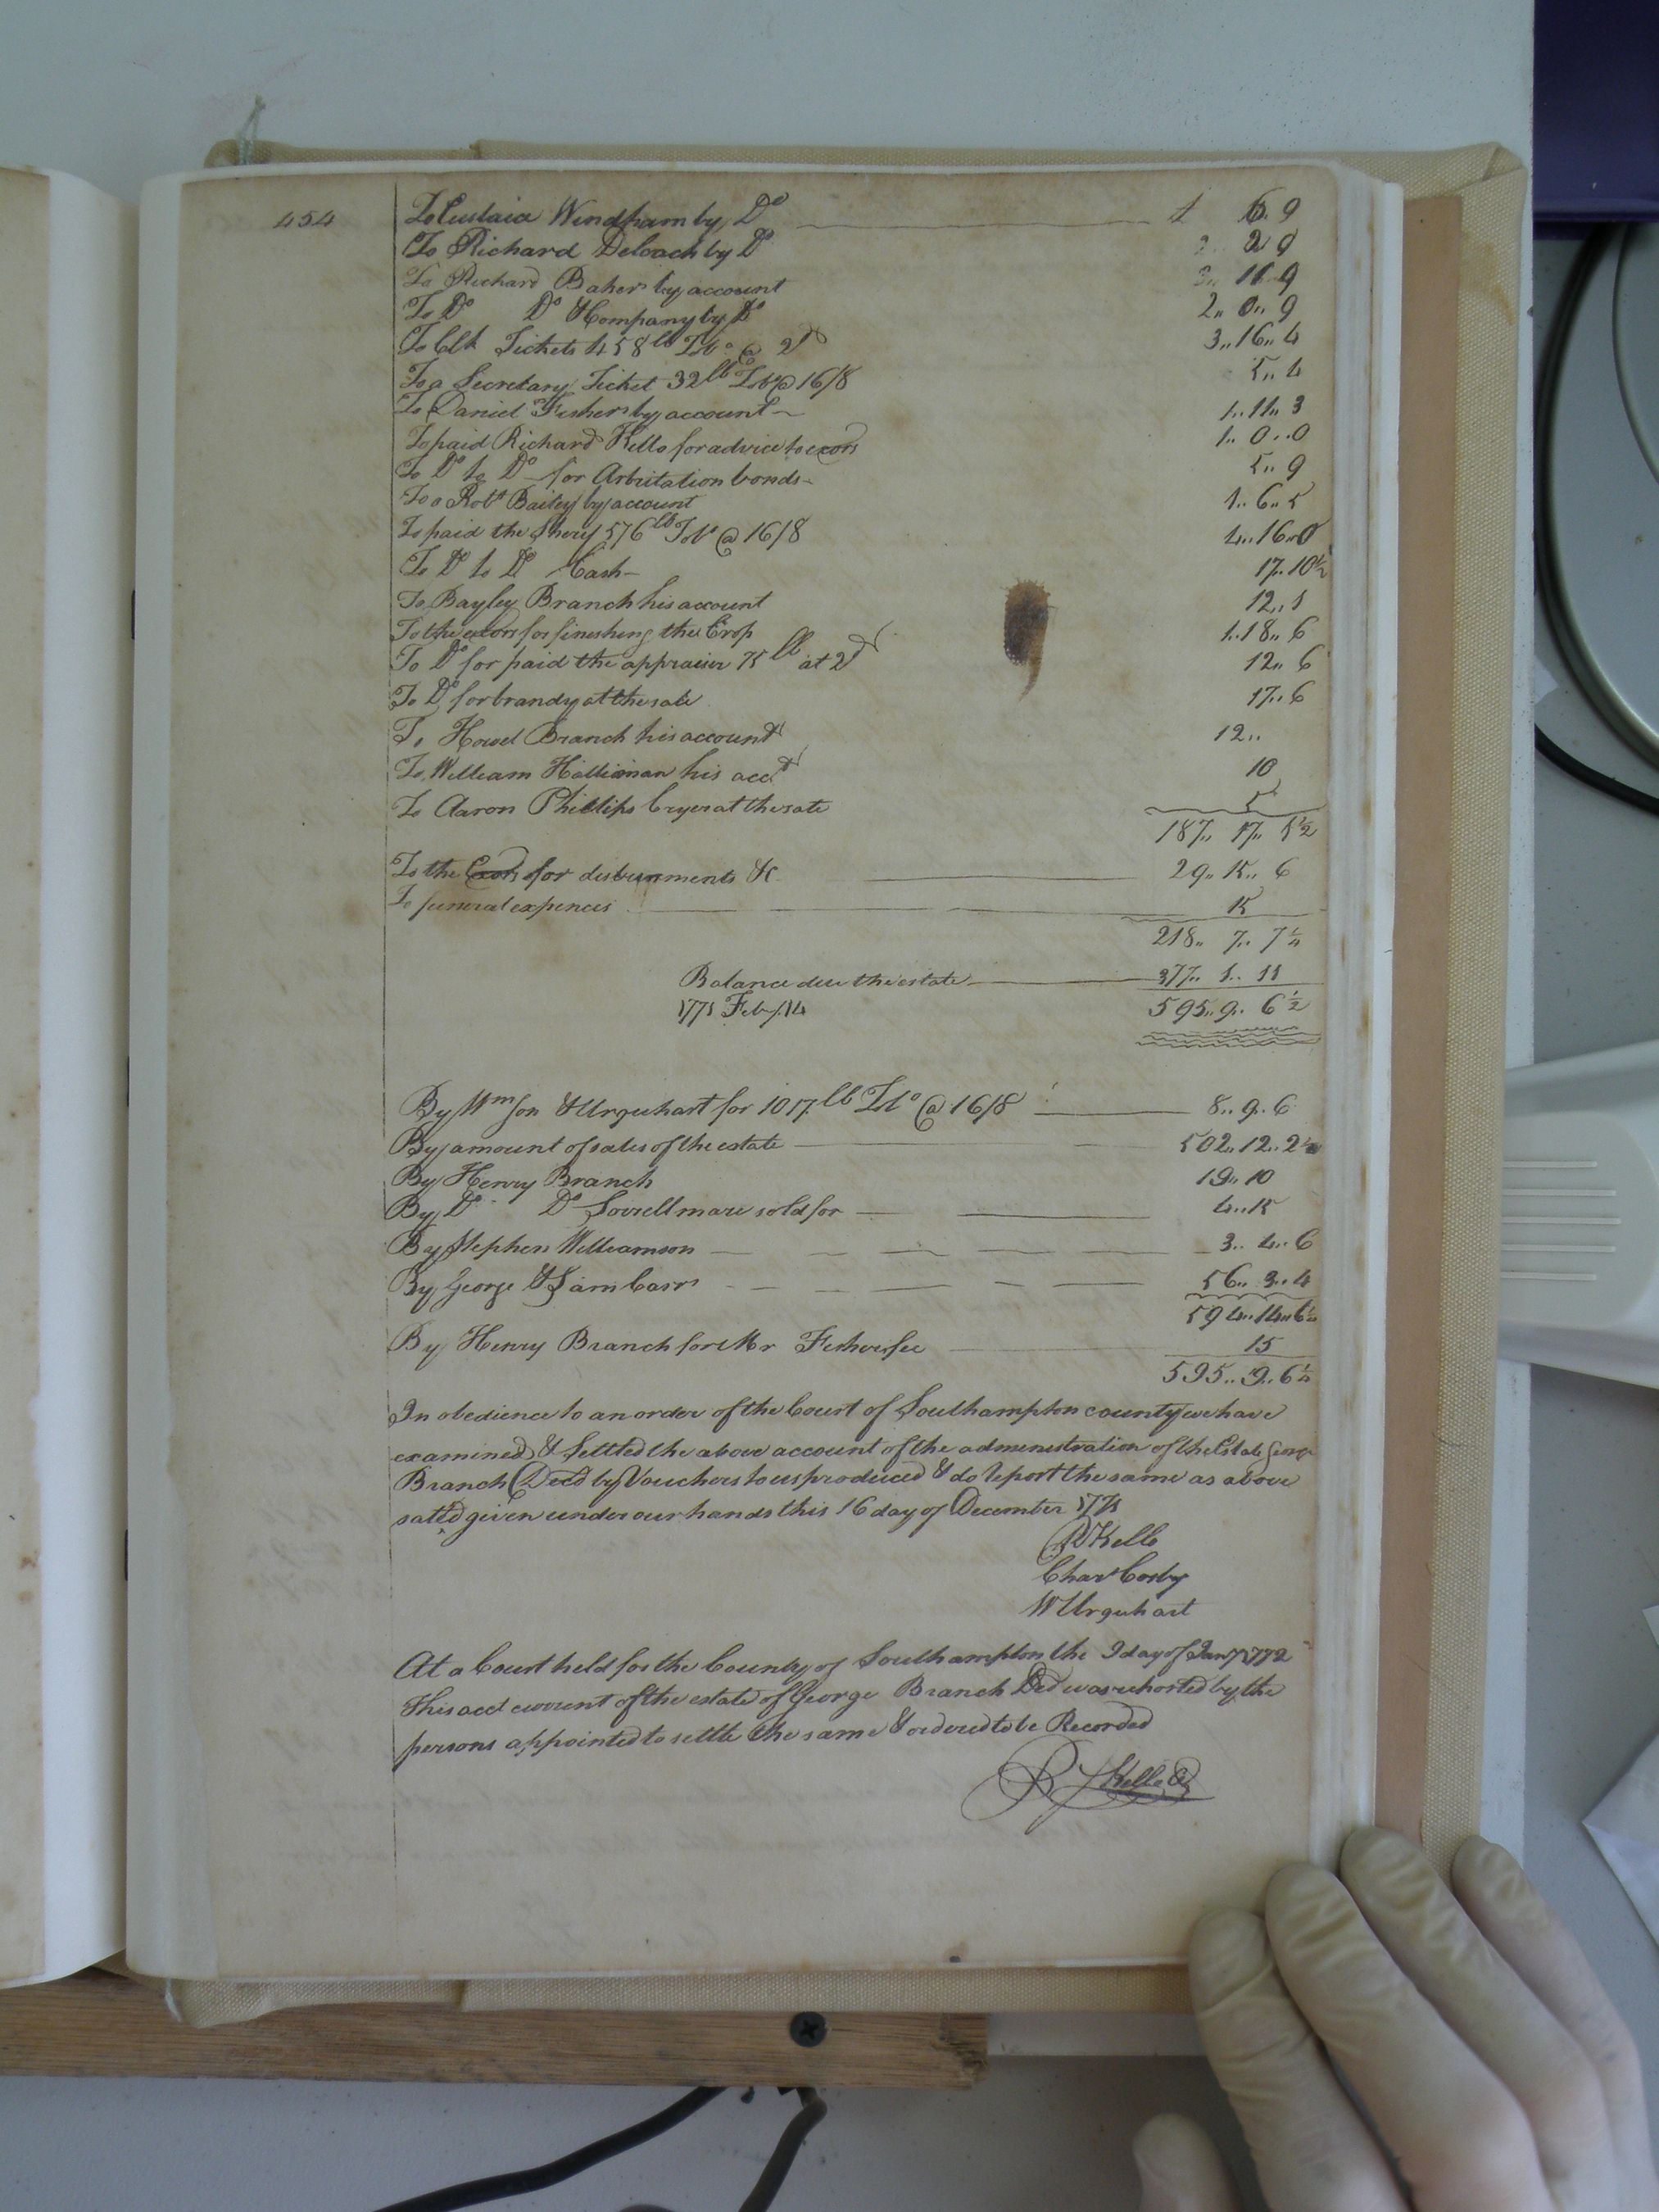 454
To Eustaice Windham by Do 1 6. 9
To Richard Deloach by Do 2.. 2 9
To Richard Bakers by account 3.. 16.. 9
To Do Do & Company by Do 2,, 0,, 9
To Clk Tickets 458 lb Tobo @ 2d 3,, 16,, 4
To a Secretary Ticket 32 lb Tob @ 16/8 5,, 4
To Daniel Fishers by account 1,, 11,, 3
To paid Richard Kello for advice to exors 1,, 0,, 0
To Do to Do for Arbitration bonds 5,, 9
To Robt Bailey by account 1,, 6,, 5
To paid the Sherif 576 lb Tobo @ 16/8 4,, 16,, 0
To Do to Do Cash 17,, 10½
To Bayley Branch his account 12,, 1
To the exors for fineshing the Crop 1,, 18,, 6
To Do for paid the appraisers 75 lb at 2d 12,, 6
To Do for brandy at the sale 17,, 6
To Howel Branch his account 12,,
To William Holliman his acct 10
To Aaron Phillips Cryer at the sale 5
187,, 17,, 1½
To the Exors for disburnments &c 29,, 15,, 6
To funeral expences 15
218,, 7,, 7¼
Balance due the estate 377,, 1,, 11
1771 Feby 14 595,, 9,, 6½
By Wmson & Urquhart for 1017 lb Tobo @ 16/8 8,, 9,, 6
By amount of sales of the estate 502,, 12,, 2¼
By Henry Branch 19,, 10
By Do Do Sorrell mare sold for 4,, 15
By Stephen Williamson 3,, 4,, 6
By George & Sam Carrs 56,, 3,, 4
594,, 14,, 6¼
By Henry Branch for Mr Fishers fee 15
595,, 9,, 6¼
In obedience to an order of the Court of Southampton county we have
examined & Settled the above account of the administration of the Estate George
Branch Decd by Vouchers to us produced & do report the same as above
satt'd given under our hands this 16 day of December 1771
R Kello
Chas Cosby
W Urquhart
At a Court held for the County of Southampton the 9 day of Jany 1772
This acct current of the estate of George Branch Ded was rehorted by the
persons appointed to settle the same & ordered to be Recorded
R Kello